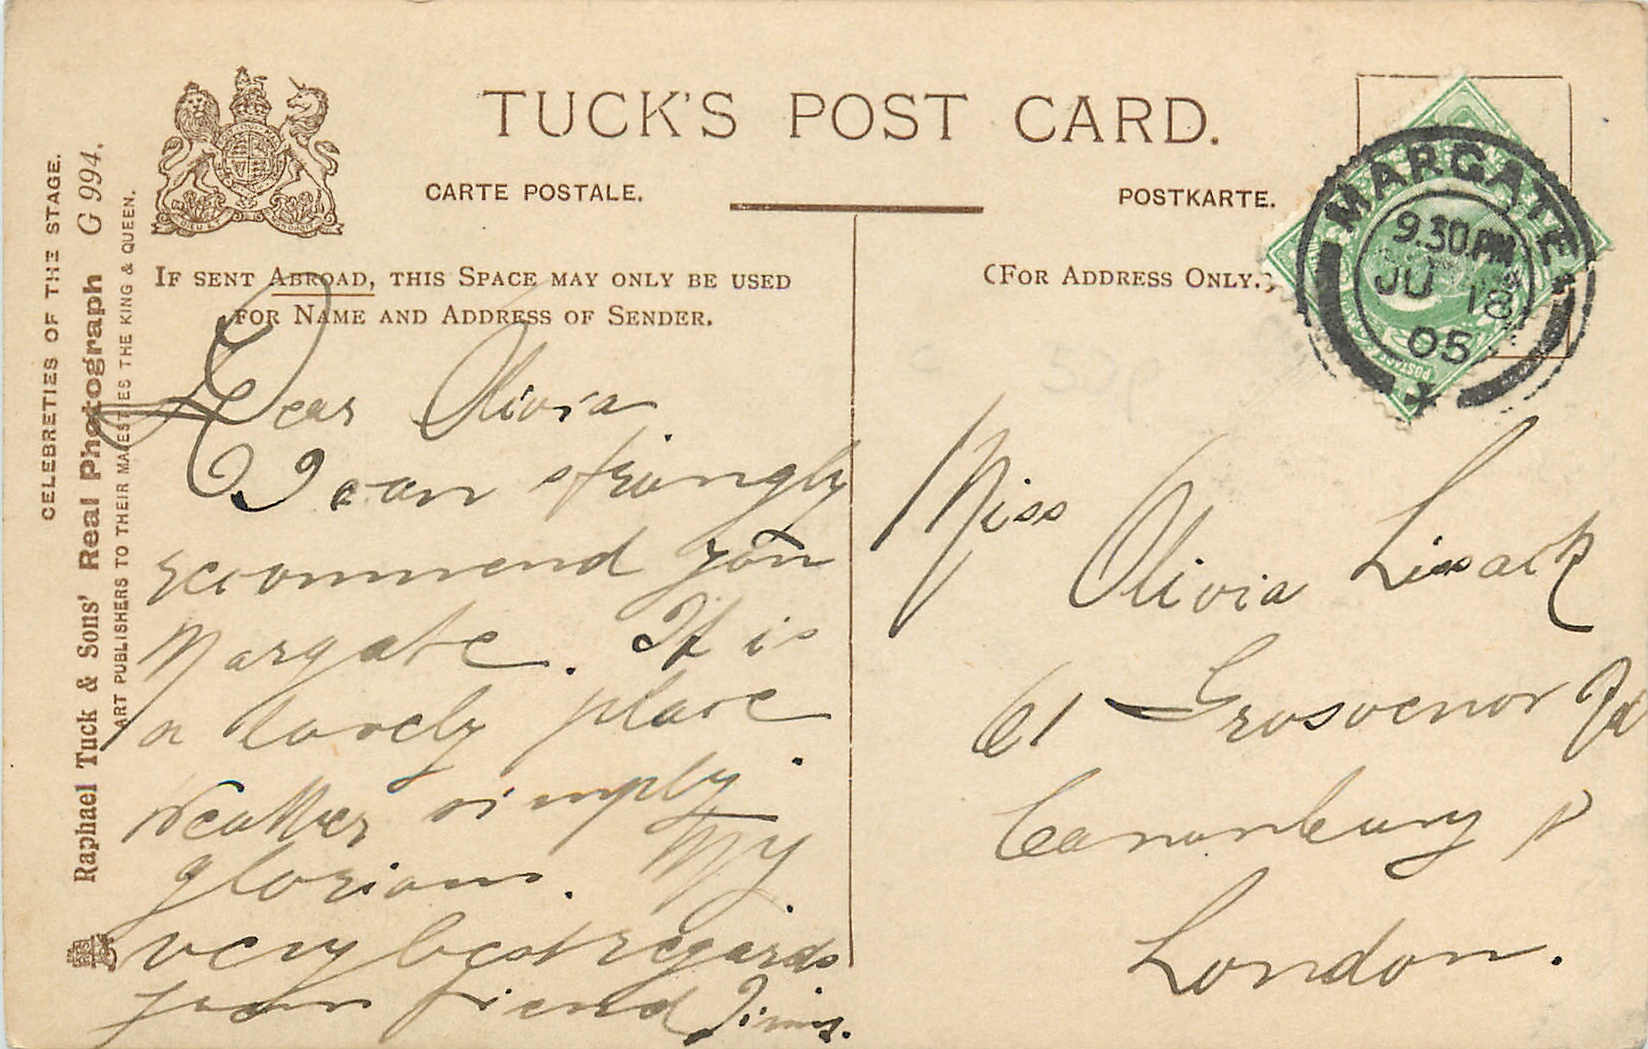 TUCK'S POST CARD.
CARTE POSTALE.
POSTKARTE.
IF SENT ABROAD, THIS SPACE MAY ONLY BE USED
FOR NAME AND ADDRESS OF SENDER.
(FOR ADDRESS ONLY.)
CELEBRETIES OF THE STAGE.
Raphael Tuck & Sons' Real Photograph G 994.
ART PUBLISHERS TO THEIR MAJESTIES THE KING & QUEEN.
MARGATE
9.30PM
JU 18
05
Dear Olivia
I can strongly
recommend you
Margate. It is
a lovely place.
Weather simply
glorious. My
very best regards
your friend
Miss
Olivia Lissack
61 Grosvenor Rd
Canonbury
London.